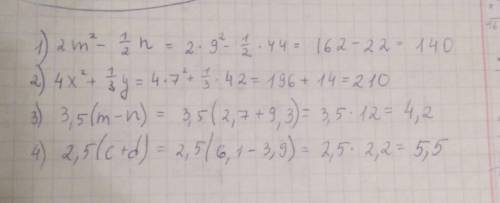 1) 2m² - 1/2 n = 2·9² - 1/2 · 44 = 162 - 22 = 140
2) 4x² + 1/3 y = 4·7² + 1/3 · 42 = 196 + 14 = 210
3) 3,5(m-n) = 3,5(2,7+9,3) = 3,5 · 12 = 4,2
4) 2,5(c+d) = 2,5(6,1-3,9) = 2,5 · 2,2 = 5,5